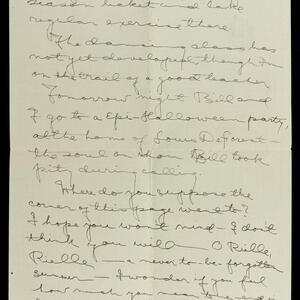 season ticket and take
regular exercise there.
The dancing class has
not yet developed, though I'm
on the trail of a good teacher.
Tomorrow night Bill and
I go to a Epi-Halloween party,
at the home of Louis DeForest -
the soul on whom Bill took
pity during calling.
Where do you suppose the
corner of this page went to?
I hope you won't mind - I don't
think you will - O Rielle,
Rielle - a never-to-be-forgotten
summer - I wonder if you feel
how much you